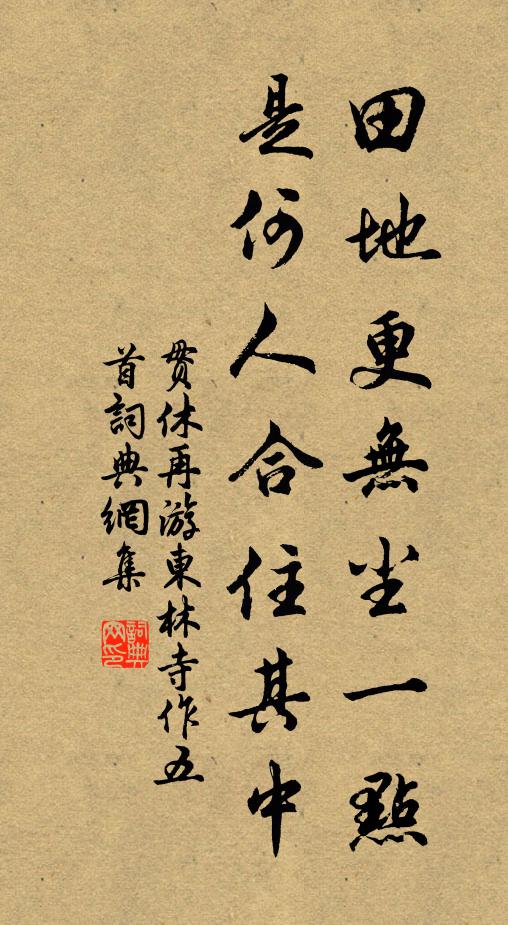 田地更無尘一點
是何人合住其中
贯休再游東林寺作五
首詞典網集
詞典
网印